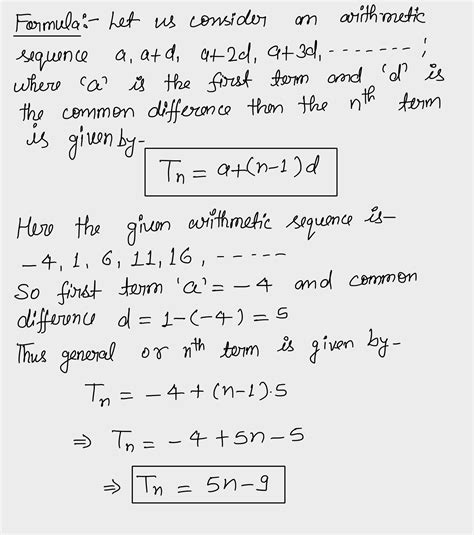 Formula:- Let us consider an arithmetic
sequence a, a+d, a+2d, a+3d, - - - - - - - ;
where 'a' is the first term and 'd' is
the common difference then the nth term
is given by-
Tn = a+(n-1)d
Here the given arithmetic sequence is-
-4, 1, 6, 11, 16, - - - - -
So first term 'a' = -4 and common
difference d = 1-(-4) = 5
Thus general or nth term is given by-
Tn = -4 + (n-1).5
⇒ Tn = -4 + 5n - 5
⇒ Tn = 5n-9